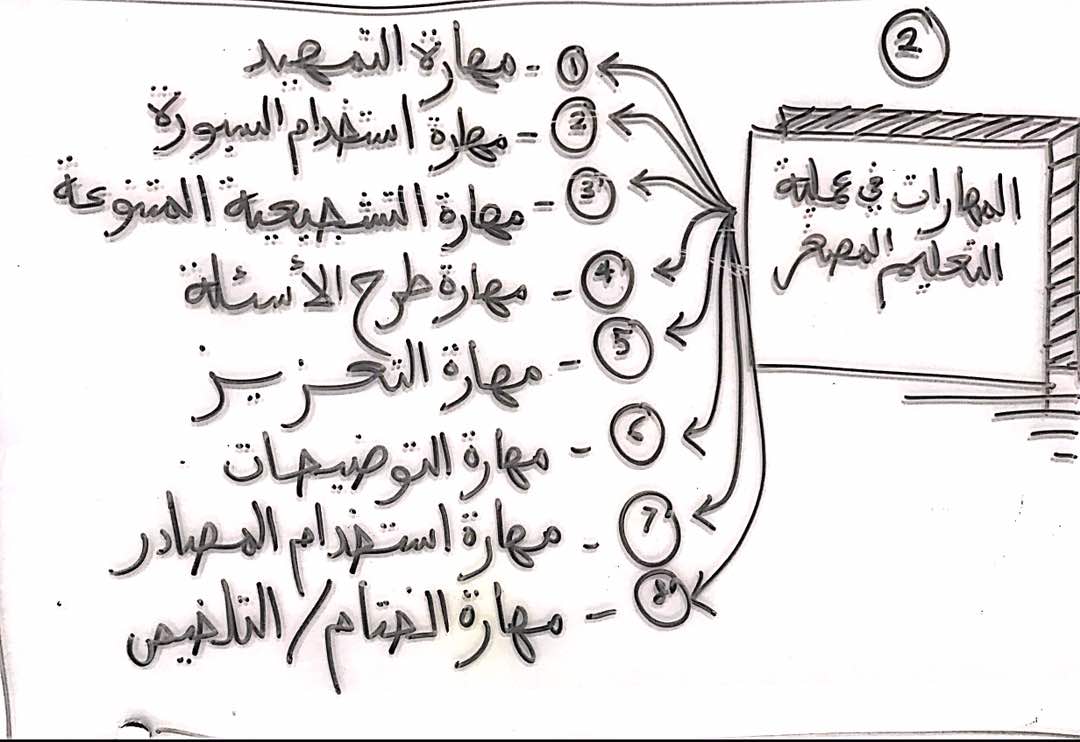 2
المهارات في عملية
التعليم المصغر
1 - مهارة التمهيد
2 - مهارة استخدام السبورة
3 - مهارة التشجيعية المتنوعة
4 - مهارة طرح الأسئلة
5 - مهارة التعزيز
6 - مهارة التوضيحات
7 - مهارة استخدام المصادر
8 - مهارة الختام / التلخيص